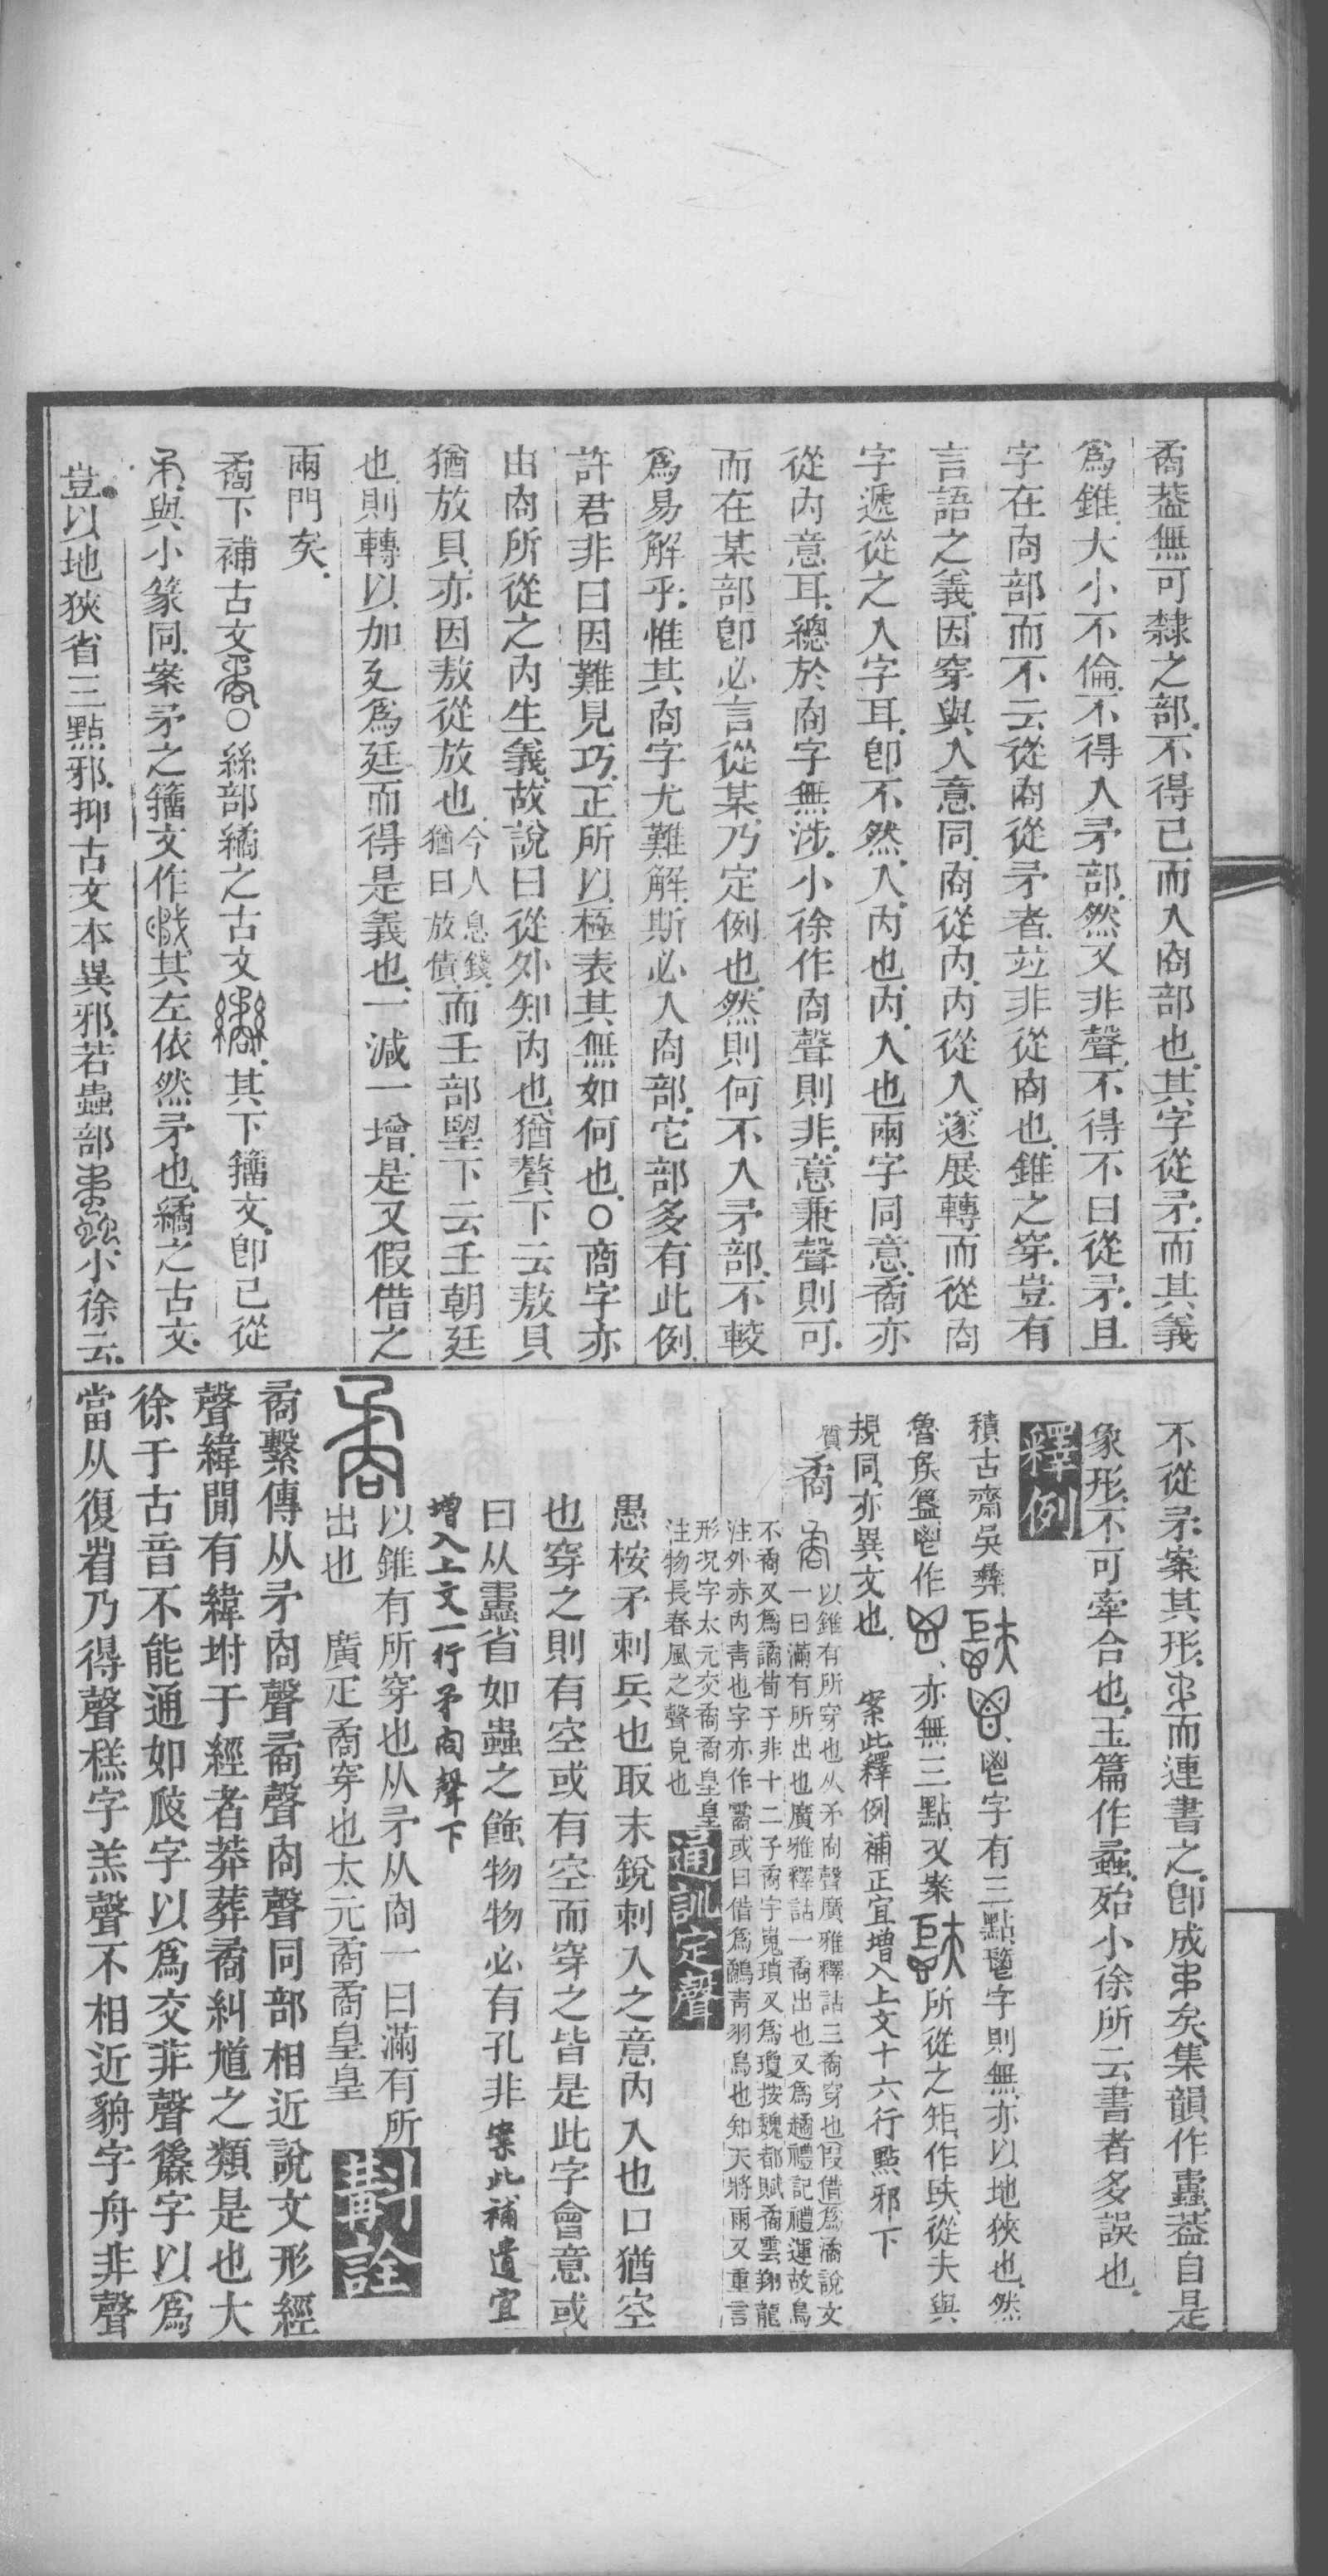 矞葢無可隸之部不得已而入㕯部也其字從矛而其義
爲錐大小不倫不得入矛部然又非聲不得不曰從矛且
字在㕯部而不云從㕯從矛者竝非從㕯也錐之穿豈有
言語之義因穿與入意同㕯從內內從入遂展轉而從㕯
字遞從之入字耳卽不然入內也內入也兩字同意矞亦
從內意耳總於㕯字無涉小徐作㕯聲則非意兼聲則可
而在某部卽必言從某乃定例也然則何不入矛部不較
爲易解乎惟其㕯字尤難解斯必入㕯部它部多有此例
許君非曰因難見巧正所以極表其無如何也○商字亦
由㕯所從之內生義故說曰從外知內也猶贅下云敖貝
猶放貝亦因敖從放也今人息錢猶曰放債而壬部朢下云壬朝廷
也則轉以加廴爲廷而得是義也一減一增是又假借之
兩門矣
矞下補古文○糸部繘之古文其下籒文卽已從
與小篆同案矛之籒文作其左依然矛也繘之古文
豈以地狹省三點邪抑古文本異邪若蟲部小徐云
不從矛案其形而連書之卽成矣集韻作葢自是
象形不可牽合也玉篇作蝥殆小徐所云書者多誤也
釋例
積古齋吳彝鬯字有三點字則無亦以地狹也然
魯矦簋鬯作亦無三點又案所從之矩作從夫與
規同亦異文也 案此釋例補正宜增入上文十六行點邪下
質矞 以錐有所穿也从矛㕯聲廣雅釋詁三矞穿也叚借爲潏說文
一曰滿有所出也廣雅釋詁一矞出也又爲趫禮記禮運故鳥
不矞又爲譎荀子非十二子矞宇嵬瑣又爲瓊按魏都賦矞雲翔龍
注外赤內靑也字亦作霱或曰借爲鷸靑羽鳥也知天將雨又重言
形況字太元交矞矞皇皇
注物長春風之聲皃也
通訓定聲
愚桉矛刺兵也取末銳刺入之意內入也口猶空
也穿之則有空或有空而穿之皆是此字會意或
曰从蠹省如蟲之蝕物物必有孔非 案此補遺宜
增入上文一行矛㕯聲下
矞 以錐有所穿也从矛从㕯一曰滿有所
出也 廣疋矞穿也太元矞矞皇皇
斠詮
矞繫傳从矛㕯聲矞聲㕯聲同部相近說文形經
聲緯閒有緯坿于經者莽葬矞糾馗之類是也大
徐于古音不能通如㕙字以爲交非聲字以爲
當从復省乃得聲糕字羔聲不相近貈字舟非聲